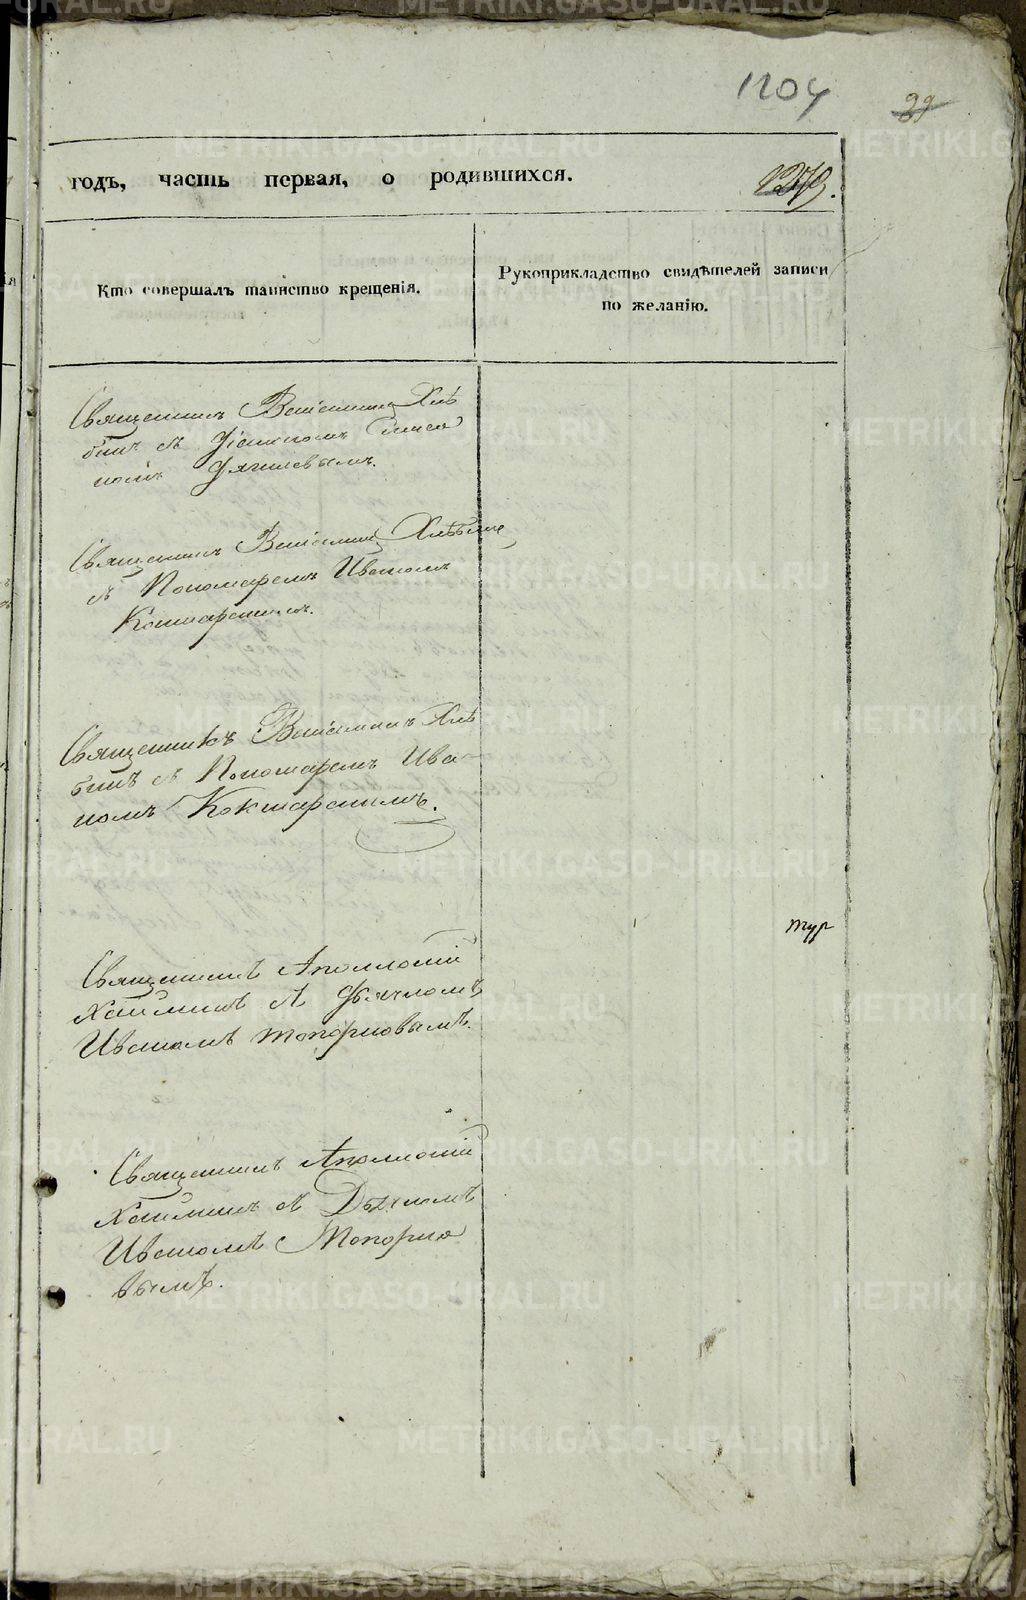 1204
99
годъ, часть первая, о родившихся.
1279.
Кто совершалъ таинство крещенія.
Рукоприкладство свидѣтелей записи
по желанію.
Священникъ Веніаминъ Хлѣ
бинъ съ Діакономъ
номъ Дягилевымъ.
Священникъ Веніаминъ Хлѣбинъ
съ Пономаремъ Иваномъ
Кокшарскимъ.
Священникъ Веніаминъ Хлѣ
бинъ съ Пономаремъ Ива
номъ Кокшарскимъ.
тур
Священникъ Аполлоній
съ Дьячкомъ
Иваномъ Топорковымъ.
Священникъ Аполлоній
съ Дьячкомъ
Иваномъ Топорко
вымъ.
METRIKI.GASO-URAL.RU